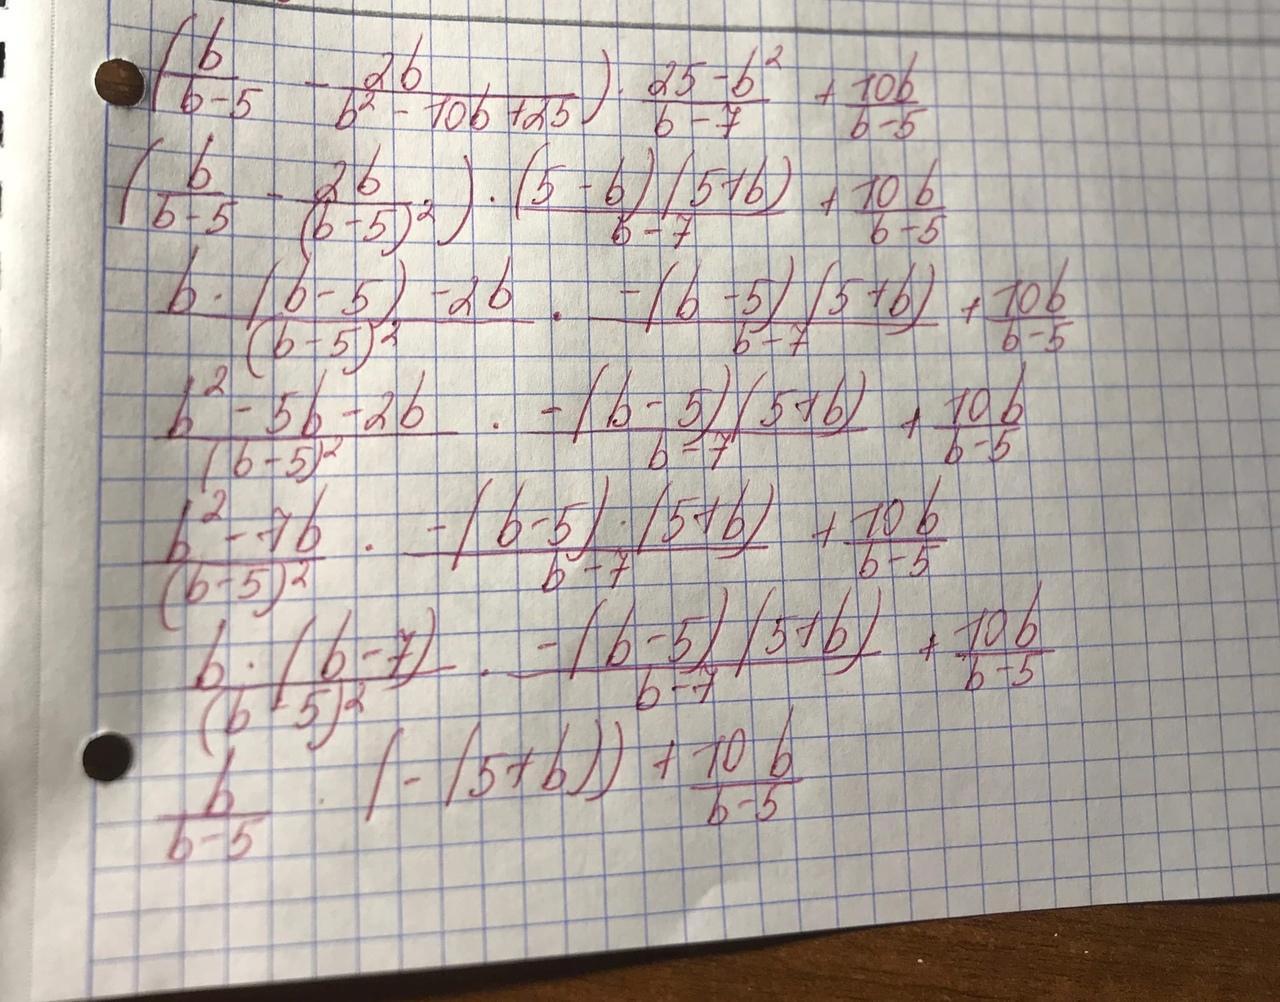 (b/(b-5) - 2b/(b² - 10b + 25)) · (25 - b²)/(b - 7) + 10b/(b-5)
(b/(b-5) - 2b/(b-5)²) · (5-b)(5+b)/(b-7) + 10b/(b-5)
(b·(b-5) - 2b)/(b-5)² · -(b-5)(5+b)/(b-7) + 10b/(b-5)
(b² - 5b - 2b)/(b-5)² · -(b-5)(5+b)/(b-7) + 10b/(b-5)
(b² - 7b)/(b-5)² · -(b-5)·(5+b)/(b-7) + 10b/(b-5)
b·(b-7)/(b-5)² · -(b-5)(5+b)/(b-7) + 10b/(b-5)
b/(b-5) · (-(5+b)) + 10b/(b-5)